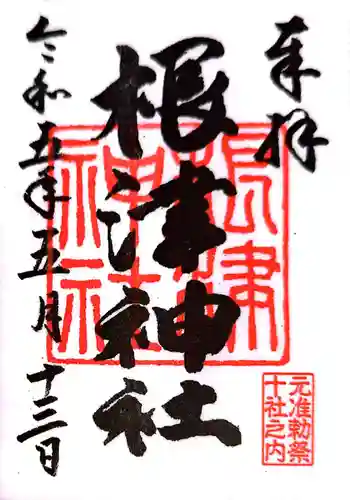 奉拝
根津神社
令和五年五月十三日
根津
神社
元准勅祭
十社之内